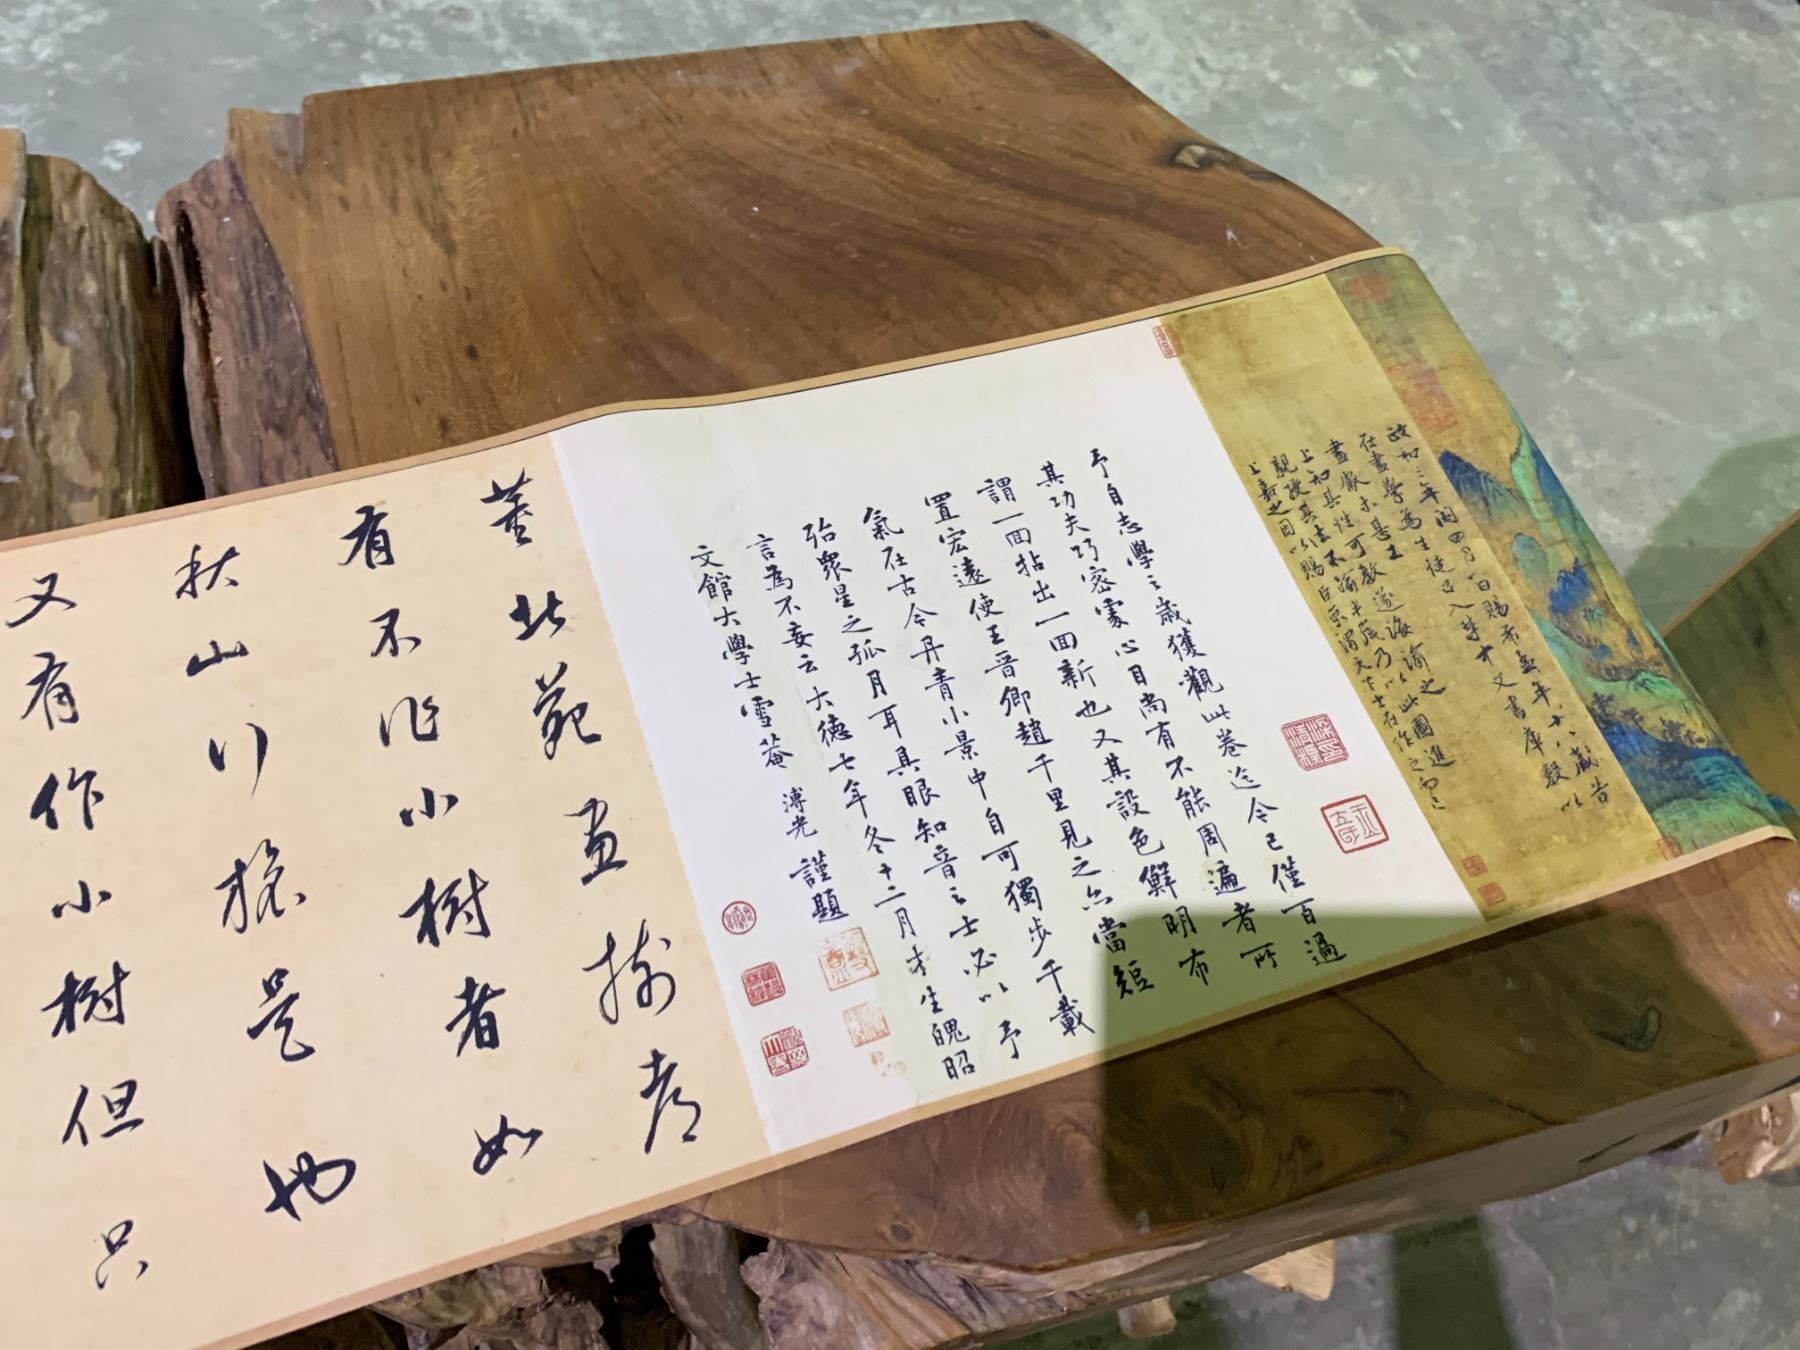 政和三年閏四月一日賜希孟年十八歲昔
在畫學為生徒召入禁中文書庫數以
畫獻未甚工
上知其性可教遂誨諭之
親授其法不踰半歲乃以此圖進
上嘉之因以賜臣京謂天下士在作之而已
予自志學之歲獲觀此卷迄今已僅百過
其功夫巧密處心目尚有不能周遍者所
謂一回拈出一回新也又其設色鮮明布
置宏遠使王晉卿趙千里見之亦當短
氣在古今丹青小景中自可獨步千載
殆眾星之孤月耳具眼知音之士必以予
言為不妄云大德七年冬十二月才生魄昭
文館大學士雪菴溥光謹題
董北苑畫樹都
有不作小樹者如
秋山行旅是也
又有作小樹但只